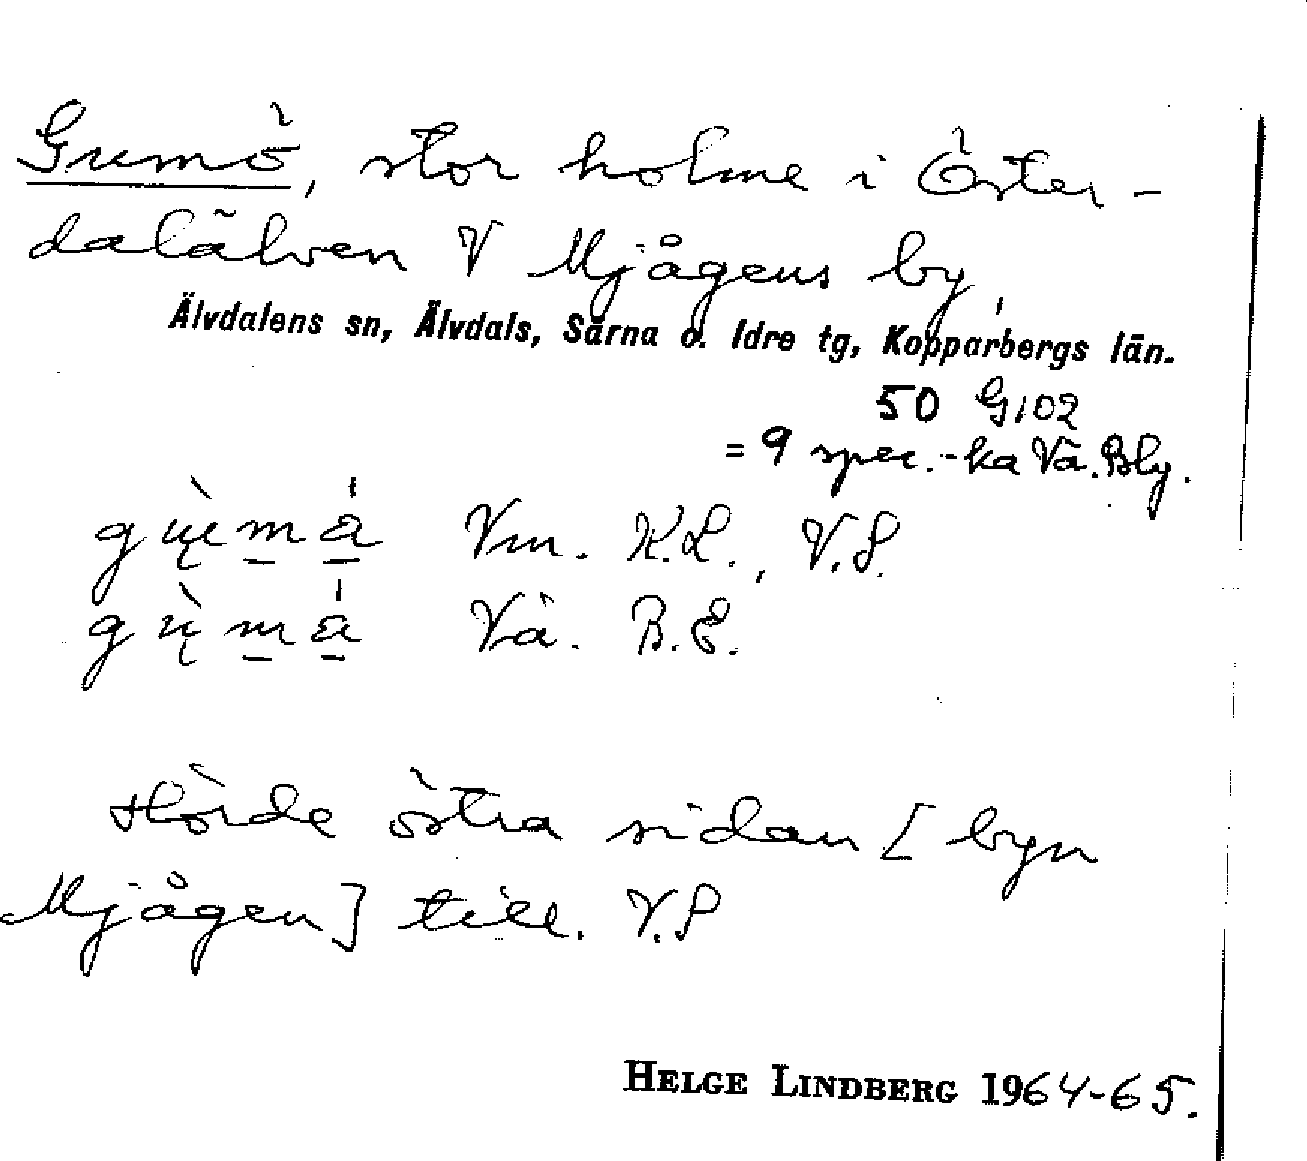 Gumö, stor holme i Öster-
dalälven V Mjågens by,
Älvdalens sn, Älvdals, Särna o. Idre tg, Kopparbergs län.
50 G102
= 9 spec.-ka Vä. Bly.
Vm. K.L., V.S.
Vå. B.E.
Hörde östra sidan [byn
Mjågen] till. V.S
HELGE LINDBERG 1964-65.